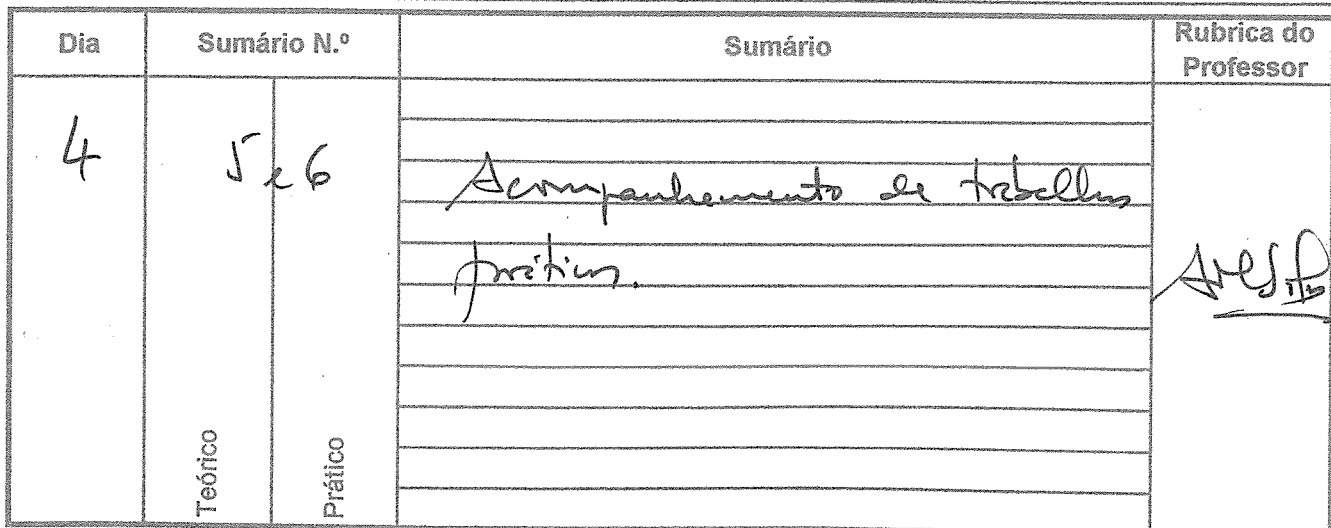 Dia Sumário N.º Sumário Rubrica do Professor
4 5 e 6 Acompanhamento de trabalhos
práticos.
Teórico Prático